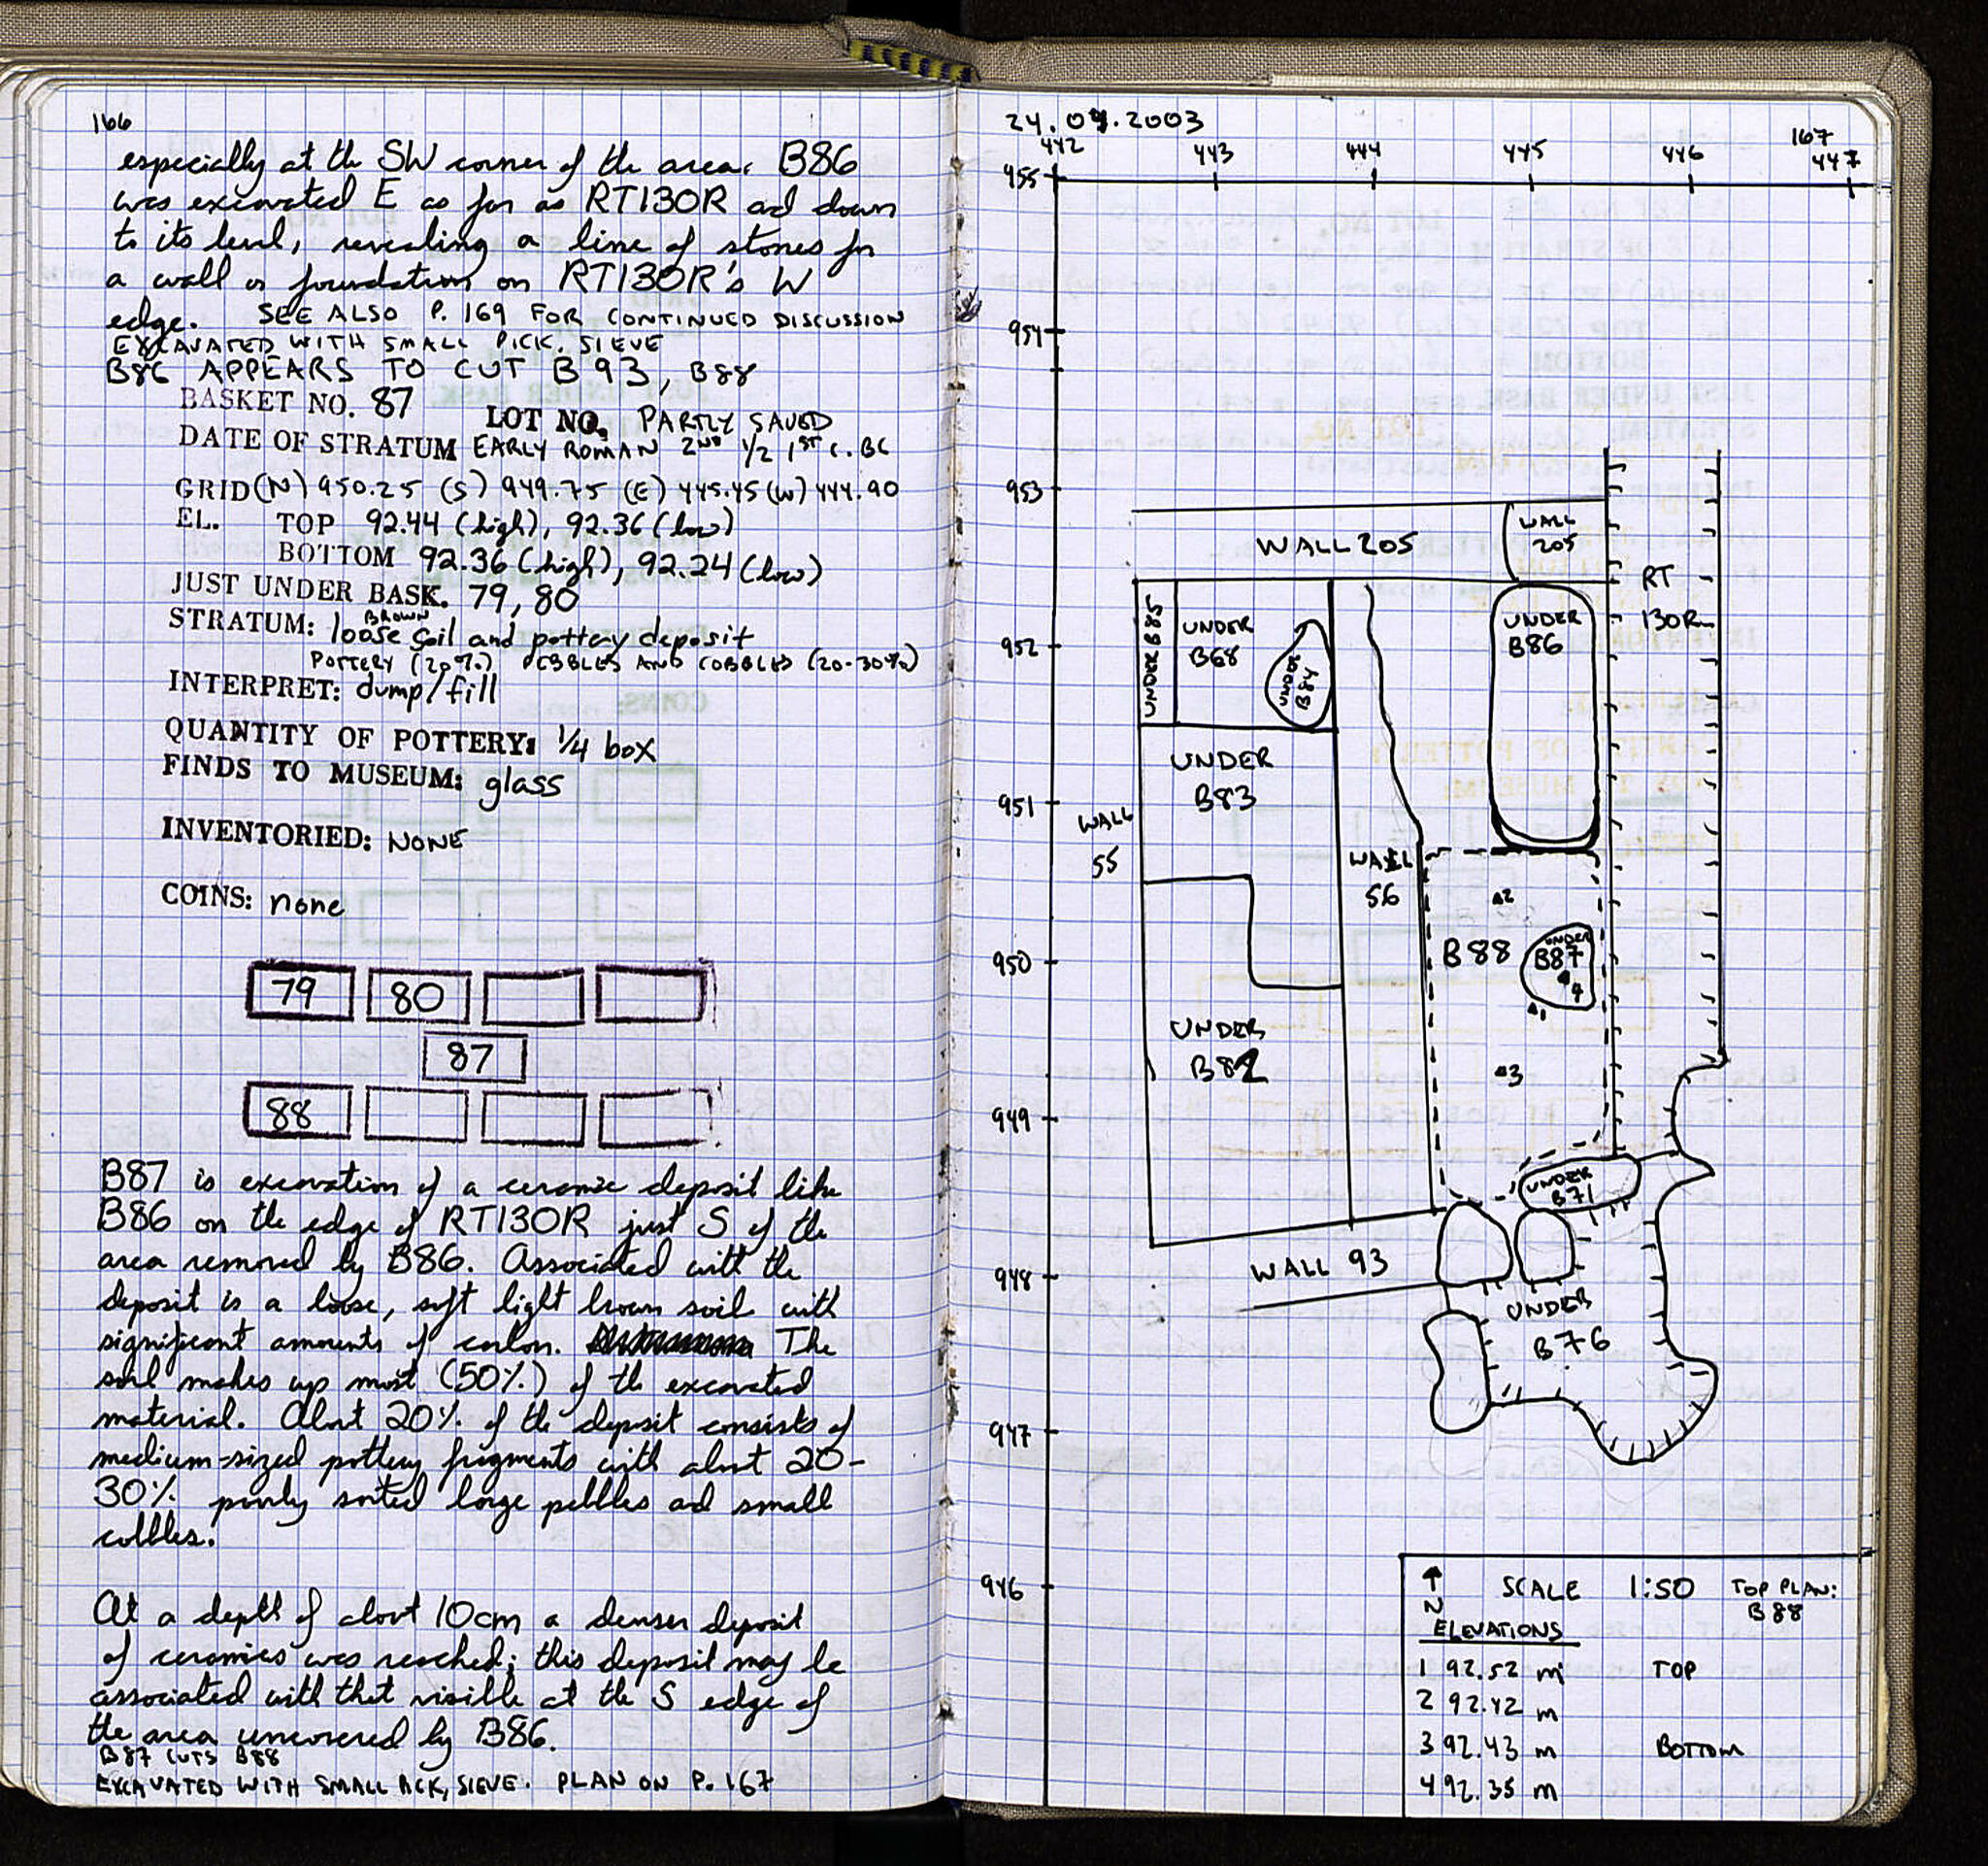 166
especially at the SW corner of the area. B86
was excavated E as far as RT130R ad down
to its level, revealing a line of stones for
a wall or foundation on RT130R's W
edge. SEE ALSO P. 169 FOR CONTINUED DISCUSSION
EXCAVATED WITH SMALL PICK, SIEVE
B86 APPEARS TO CUT B93, B88
BASKET NO. 87
LOT NO. PARTLY SAVED
DATE OF STRATUM EARLY ROMAN 2ND 1/2 1ST C. BC
GRID (N) 950.25 (S) 949.75 (E) 445.45 (W) 444.90
EL. TOP 92.44 (high), 92.36 (low)
BOTTOM 92.36 (high), 92.24 (low)
JUST UNDER BASK. 79, 80
BROWN
STRATUM: loose soil and pottery deposit
POTTERY (20%) PEBBLES AND COBBLES (20-30%)
INTERPRET: dump/fill
QUANTITY OF POTTERY: 1/4 box
FINDS TO MUSEUM: glass
INVENTORIED: NONE
COINS: none
79 80
87
88
B87 is excavation of a ceramic deposit like
B86 on the edge of RT130R just S of the
area removed by B86. Associated with the
deposit is a loose, soft light brown soil with
significant amounts of carbon. The
soil makes up most (50%) of the excavated
material. About 20% of the deposit consists of
medium-sized pottery fragments with about 20-
30% poorly sorted large pebbles ad small
cobbles.
At a depth of about 10cm a denser deposit
of ceramics was reached; this deposit may be
associated with that visible at the S edge of
the area uncovered by B86.
B87 CUTS B88
EXCAVATED WITH SMALL PICK, SIEVE. PLAN ON P. 167
24.04.2003
167
442 443 444 445 446 447
955
954
953
WALL 205
WALL
205
RT
130R
UNDER B85
UNDER
B68
UNDER
B84
UNDER
B86
952
UNDER
B83
951
WALL
55
WALL
56
2
B88
UNDER
B87
4
1
950
UNDER
B82
3
949
UNDER
B71
WALL 93
948
UNDER
B76
947
946
N
SCALE 1:50
TOP PLAN:
B88
ELEVATIONS
1 92.52 m TOP
2 92.42 m
3 92.43 m BOTTOM
4 92.35 m